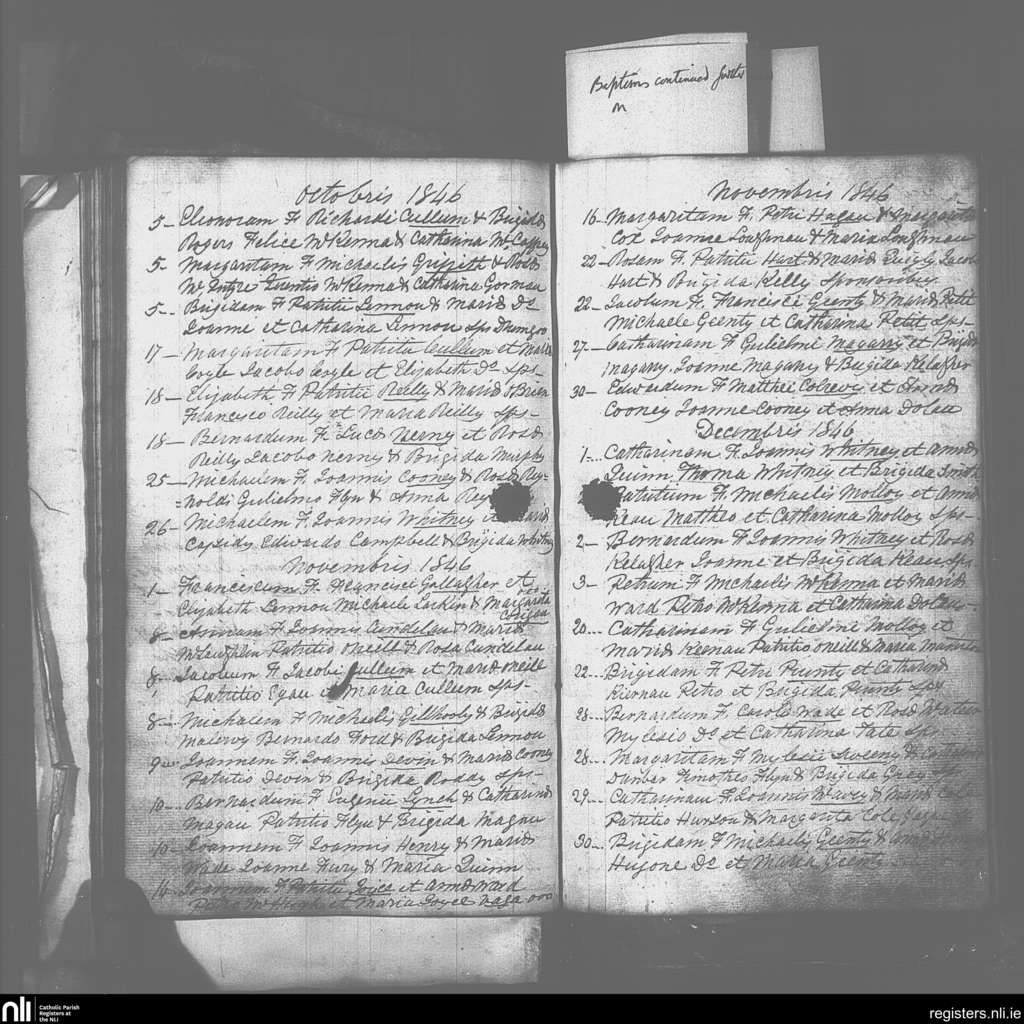 Baptisms continued further
on
Octobris 1846
5 - Elionoram F Richardi Cullum & Brigida
Rogers Felice McKenna & Catharina McCaffrey
5 - Margaritam F Michaelis Griffith & Rosa
McIntire Terentio McKenna & Catharina Gorman
5 - Brigidam F Patritii Lennon & Maria Do
Joanne et Catharina Lennon Sps
17 - Margaritam F Patritii Cullum et Maria
Coyle Jacobo Coyle et Elizabeth Do Sps -
18 - Elizabeth F Patritii Reilly & Maria OBrien
Francisco Reilly et Maria Reilly Sps -
18 - Bernardum F Luca Nerny et Rosa
Reilly Jacobo Nerny & Brigida Murphy
25 - Michaelem F Joannis Cooney & Rosa Rey=
=nolds Gulielmo Flyn & Anna Rey
26 - Michaelem F. Joannis Whitney et Maria
Capidy Edwardo Campbell & Brigida Whitney
Novembris 1846
1 - Franciscum F. Francisci Gallagher et
Elizabeth Lennon Michaele Larkin & Margarita
8 - Annam F Joannis Cundelan & Maria
McLaughlin Patritio ONeill & Rosa Cundelan
8 - Jacobum F Jacobi Cullum et Maria ONeill
Patritio Egan et Maria Cullum Sps -
8 - Michaelem F Michaelis Gillhooly & Brigida
Mulervy Bernardo Ford & Brigida Lennon
9 - Joannem F. Joannis Devin & Maria Cooney
Patritio Devin & Brigida Roddy Sps -
10 - Barnardum F Eugenii Lynch & Catharina
Magau Patritio Flyn & Brigida Magau
10 - Joannem F Joannis Henry & Maria
Wade Joanne Fury & Maria Quinn
14 - Joannem F Patritii Joyce et Anna Ward
Petro McHugh et Maria Joyce
Novembris 1846
16 - Margaritam F. Petri Hagan & Margarita
Cox Joanne Loughnau & Maria Loughnau
22 - Rosam F. Patritii Hart & Maria Quigly Jacobo
Hart & Brigida Kelly Sponsoribus
22 - Jacobum F. Francisci Geenty & Maria Petit
Michaele Geenty et Catharina Petit Sps -
27 - Catharinam F Gulielmi Magarry et Brigida
Magarry. Joanne Magarry & Brigida Kelagher
30 - Edwardum F Matthei Colrevy et Anna
Cooney Joanne Cooney et Anna Dolan
Decembris 1846
1 - Catharinam F. Joannis Whitney et Anna
Quinn Thoma Whitney et Brigida
Patritium F. Michaelis Molloy et Anna
Keau Mattheo et Catharina Molloy Sps -
2 - Bernardum F Joannis Whitney et Rosa
Kelagher Joanne et Brigida Keau Sps
3 - Petrum F Michaelis McKenna et Maria
Ward Petro McKenna et Catharina Dolan
20 - Catharinam F Gulielmi Molloy et
Maria Keenau Patritio ONeill & Maria
22 - Brigidam F Petri Prunty et Catharina
Kiernau Petro et Brigida Prunty Sps
28 - Bernardum F. Caroli Wade et Rosa
Mylesio Do et Catharina Tate Sps
28 - Margaritam F Mylesii Sweeny & Catharina
Dunber Timotheo Flyn & Brigida Gray Sps
29 - Catharinam F. Joannis & Maria
Patritio & Margarita Cole
30 - Brigidam F Michaelis Geenty & Anna
Do et Maria Geenty
nli
Catholic Parish
Registers at
the NLI
registers.nli.ie